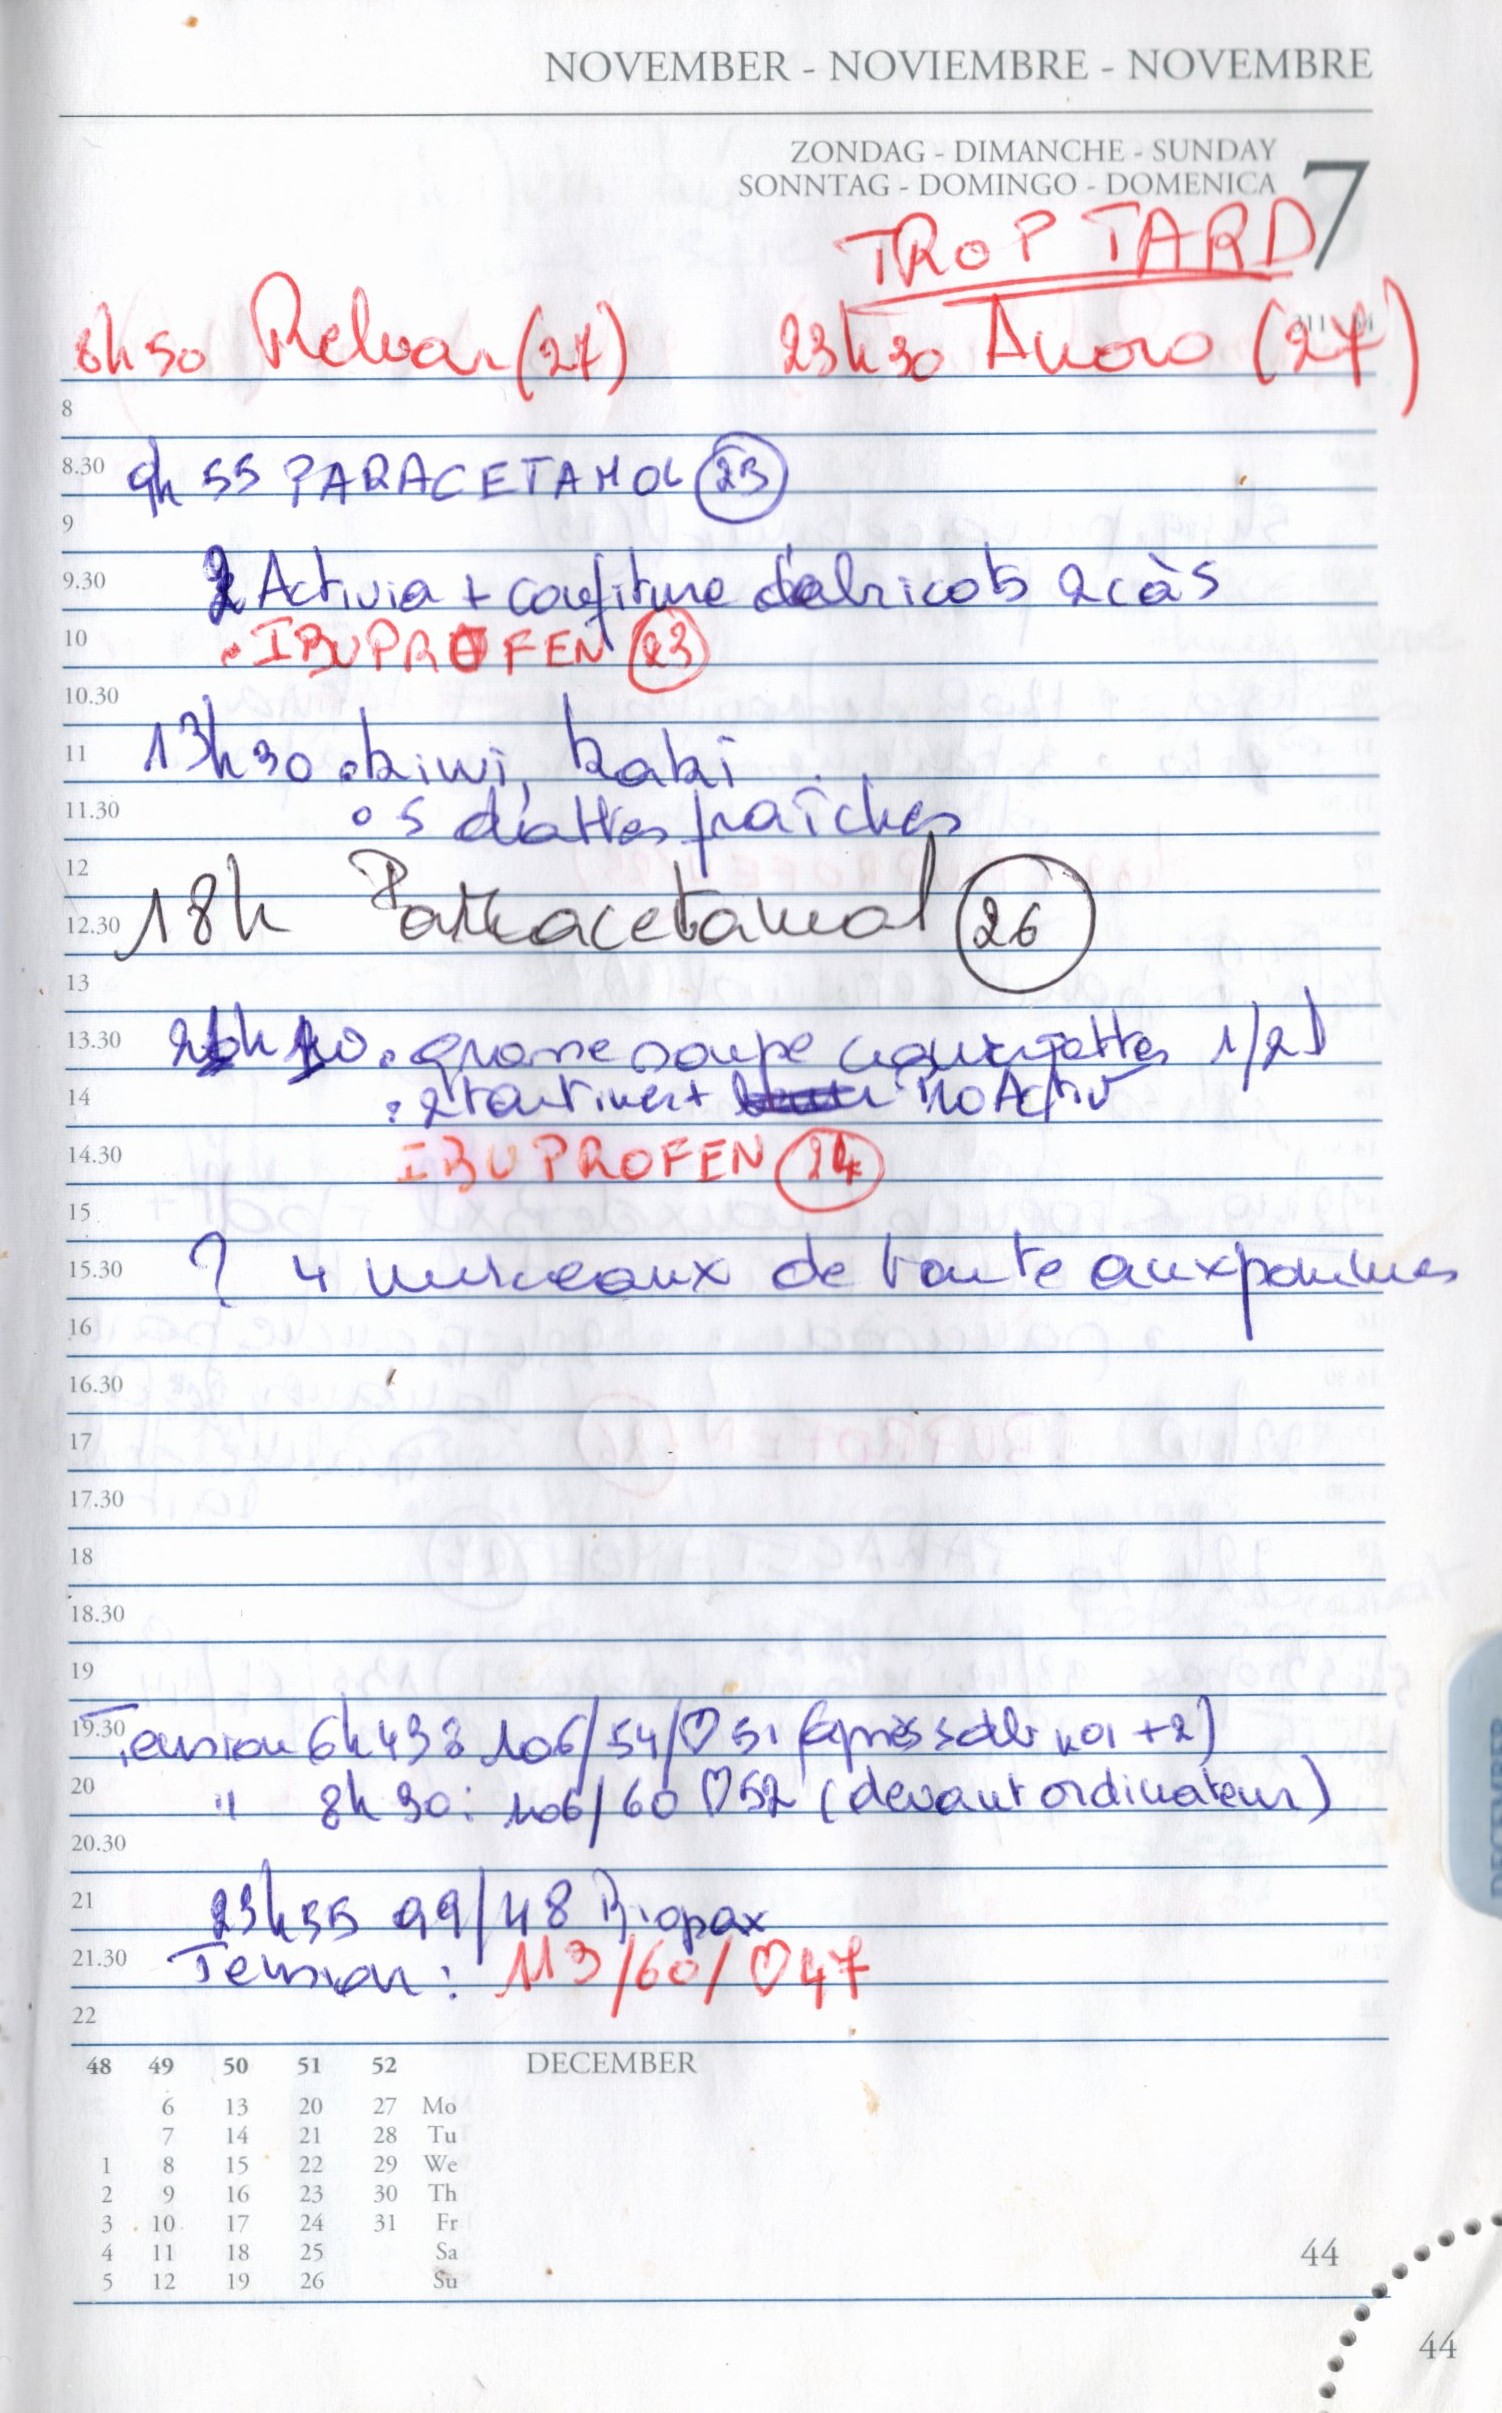 NOVEMBER - NOVIEMBRE - NOVEMBRE
ZONDAG - DIMANCHE - SUNDAY
SONNTAG - DOMINGO - DOMENICA
7
TROP TARD
8h50 Relvar (27) 23h30 Anoro (27)
8
8.30 9h55 PARACETAMOL 23
9
9.30 2 Activia + confiture d'abricots 2 càs
10 • IBUPROFEN 23
10.30
11 13h30 • kiwi, kaki
11.30 • 5 dattes fraîches
12
12.30 18h Paracetamol 26
13
13.30 • grosse soupe courgettes 1/2 l
14 • 2 tartines + ProActiv
14.30 IBUPROFEN 24
15
15.30 ? 4 morceaux de tarte aux pommes
16
16.30
17
17.30
18
18.30
19
19.30 Tension 6h43: 106/54/♡51 (après +2)
20 " 8h30: 106/60 ♡52 (devant ordinateur)
20.30
21 23h55 99/48 Riopax
21.30 Tension: 113/60/♡47
22
48 49 50 51 52 DECEMBER
6 13 20 27 Mo
7 14 21 28 Tu
1 8 15 22 29 We
2 9 16 23 30 Th
3 10 17 24 31 Fr
4 11 18 25 Sa
5 12 19 26 Su
44
44
DECEMBER